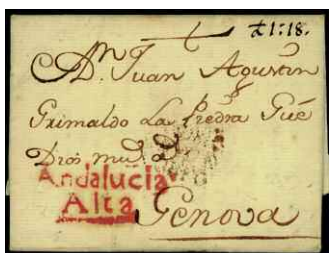 ₶1:18.
A Dⁿ Juan Agustin
Grimaldo La Piedra Gué
Dios mu.s a.s
Andalucia
Alta
Genova